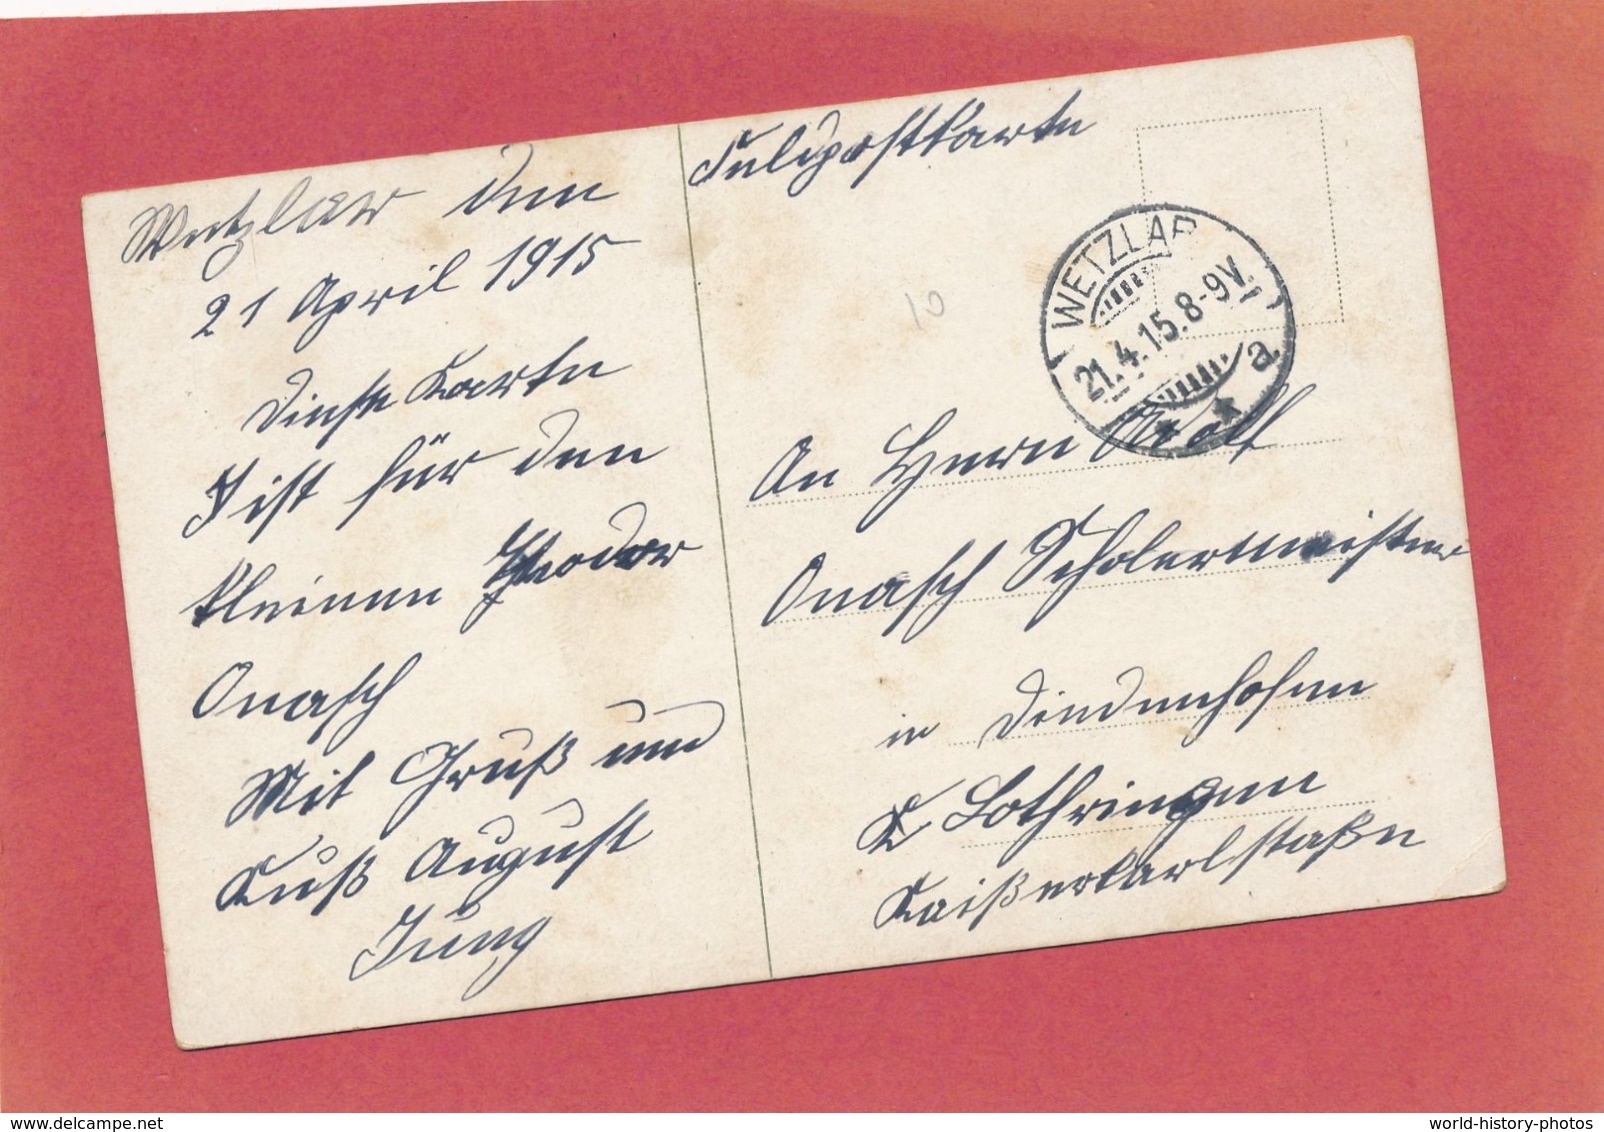 Wetzlar den
21 April 1915
Diese Karte
ist für den
kleinen Theodor
Onasch
Mit Gruß und
Kuß August
Jung
Feldpostkarte
10
WETZLAR
21.4.15.8-9V.
a
An Herrn
Onasch
in Diedenhofen
Lothringen
world-history-photos